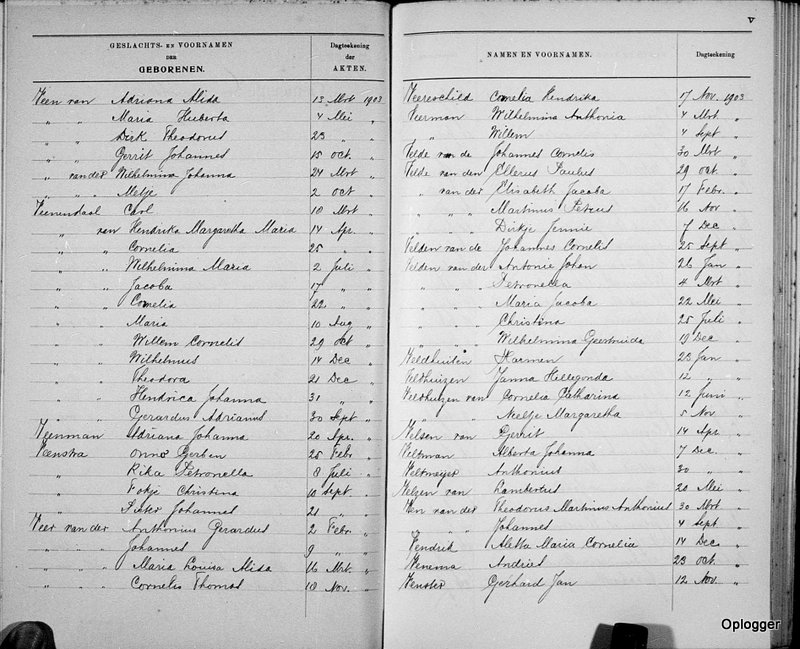 GESLACHTS- EN VOORNAMEN
DER
GEBORENEN.
Dagteekening
der
AKTEN.
Veen van Adriana Alida 13 Mrt 1903
" " Maria Huberta 4 Mei "
" " Dirk Theodorus 23 " "
" " Gerrit Johannes 15 Oct. "
" van der Wilhelmina Johanna 24 Mrt "
" " Metje 2 Oct "
Veenendaal Carl 10 Mrt "
" van Hendrika Margaretha Maria 14 Apr. "
" " Cornelia 25 " "
" " Wilhelmina Maria 2 Juli "
" " Jacoba 17 " "
" " Cornelia 22 " "
" " Maria 10 Aug "
" " Willem Cornelis 29 Oct "
" " Wilhelmus 14 Dec "
" " Theodora 21 Dec "
" " Hendrica Johanna 31 " "
" " Gerardus Adrianus 30 Sept "
Veenman Adriana Johanna 20 Apr. "
Veenstra Onno Gerben 25 Febr "
" Rika Petronella 8 Juli "
" Fokje Christina 10 Sept. "
" Johannes 21 " "
Veer van der Anthonius Gerardus 2 Febr. "
" " " Johannes 9 " "
" " " Maria Louisa Alida 16 Mrt. "
" " " Cornelis Thomas 10 Nov. "
V
NAMEN EN VOORNAMEN.
Dagteekening
Veereschild Cornelia Hendrika 17 Nov. 1903
Veerman Wilhelmina Anthonia 4 Mrt. "
" Willem 4 Sept "
Velde van de Johannes Cornelis 30 Mrt "
Velde van den Ellerus Paulus 29 Oct. "
" van der Elisabeth Jacoba 17 Febr. "
" " " Martinus Petrus 16 Nov "
" " " Dirkje Jennie 7 Dec "
Velden van de Johannes Cornelis 25 Sept "
Velden van der Antonie Johan 26 Jan "
" " " Petronella 4 Mrt "
" " " Maria Jacoba 22 Mei "
" " " Christina 25 Juli "
" " " Wilhelmina Geertruida 19 Dec "
Veldhuiten Harmen 23 Jan "
Veldhuizen Janna Hillegonda 12 " "
Veldhuizen van Cornelia Catharina 12 Juni "
" " Neeltje Margaretha 5 Nov "
Velsen van Gerrit 14 Apr "
Veltman Alberta Johanna 7 Dec. "
Veltmeyer Anthonius 30 " "
Velzen van Lambertus 20 Mei "
Ven van der Theodorus Martinus Anthonius 30 Mrt. "
" " " Johannes 4 Sept "
Vendrik Aletta Maria Cornelia 14 Dec. "
Venema Andries 23 Oct. "
Venster Gerhard Jan 12 Nov. "
Oplogger